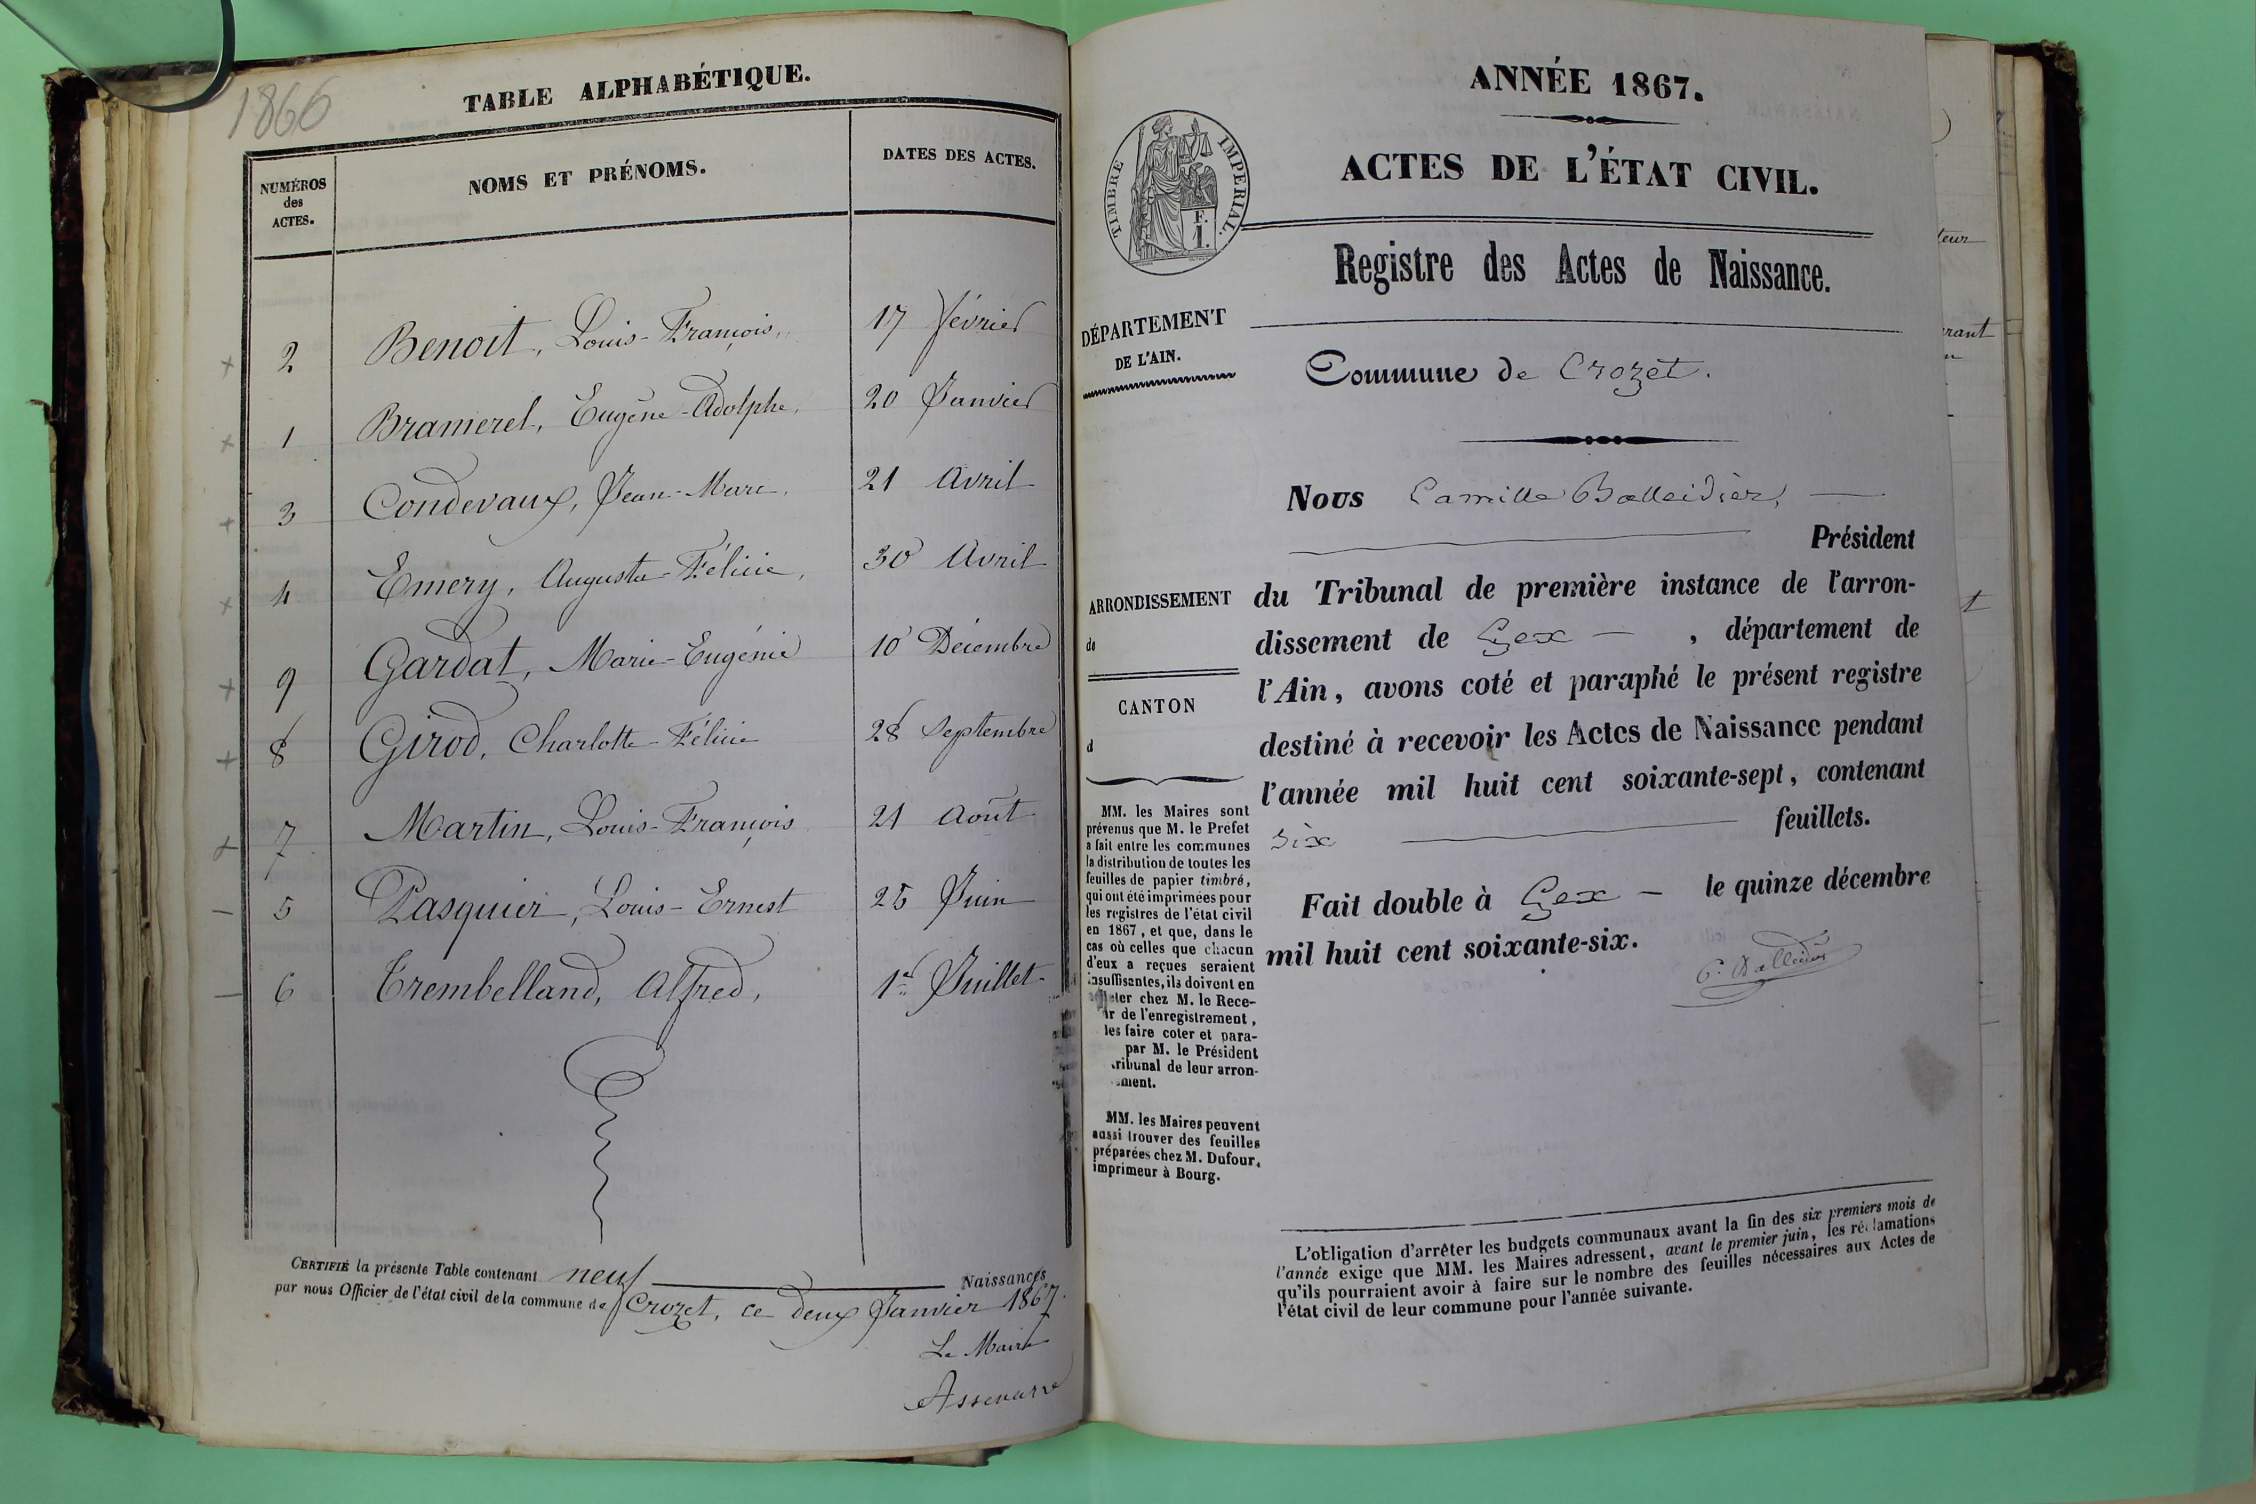 1866
TABLE ALPHABÉTIQUE.
NUMÉROS des ACTES.
NOMS ET PRÉNOMS.
DATES DES ACTES.
2 Benoit, Louis-François, 17 février
1 Bramerel, Eugène-Adolphe, 20 Janvier
3 Condevaux, Jean-Marc, 21 Avril
4 Emery, Augusta-Félicie, 30 Avril
9 Gardat, Marie-Eugénie 10 Décembre
8 Girod, Charlotte-Félicie 28 Septembre
7 Martin, Louis-François 21 Août
5 Pasquier, Louis-Ernest 25 Juin
6 Trembelland, Alfred, 1er Juillet
CERTIFIÉ la présente Table contenant neuf Naissances
par nous Officier de l'état civil de la commune de Crozet, ce deux Janvier 1867.
Le Maire
ANNÉE 1867.
ACTES DE L'ÉTAT CIVIL.
TIMBRE IMPERIAL.
F.
1.
Registre des Actes de Naissance.
DÉPARTEMENT
DE L'AIN.
Commune de Crozet.
Nous Camille Balleidier,
Président
ARRONDISSEMENT
de
CANTON
d
du Tribunal de première instance de l'arron-
dissement de Gex, département de
l'Ain, avons coté et paraphé le présent registre
destiné à recevoir les Actes de Naissance pendant
l'année mil huit cent soixante-sept, contenant
six feuillets.
Fait double à Gex le quinze décembre
mil huit cent soixante-six.
C. Balleidier
MM. les Maires sont
prévenus que M. le Prefet
a fait entre les communes
la distribution de toutes les
feuilles de papier timbré,
qui ont été imprimées pour
les registres de l'état civil
en 1867, et que, dans le
cas où celles que chacun
d'eux a reçues seraient
insuffisantes, ils doivent en
chez M. le Rece-
de l'enregistrement,
les faire coter et para-
par M. le Président
ribunal de leur arron-
ment.
MM. les Maires peuvent
aussi trouver des feuilles
préparées chez M. Dufour,
imprimeur à Bourg.
L'obligation d'arrêter les budgets communaux avant la fin des six premiers mois de
l'année exige que MM. les Maires adressent, avant le premier juin, les réclamations
qu'ils pourraient avoir à faire sur le nombre des feuilles nécessaires aux Actes de
l'état civil de leur commune pour l'année suivante.
teur
rant